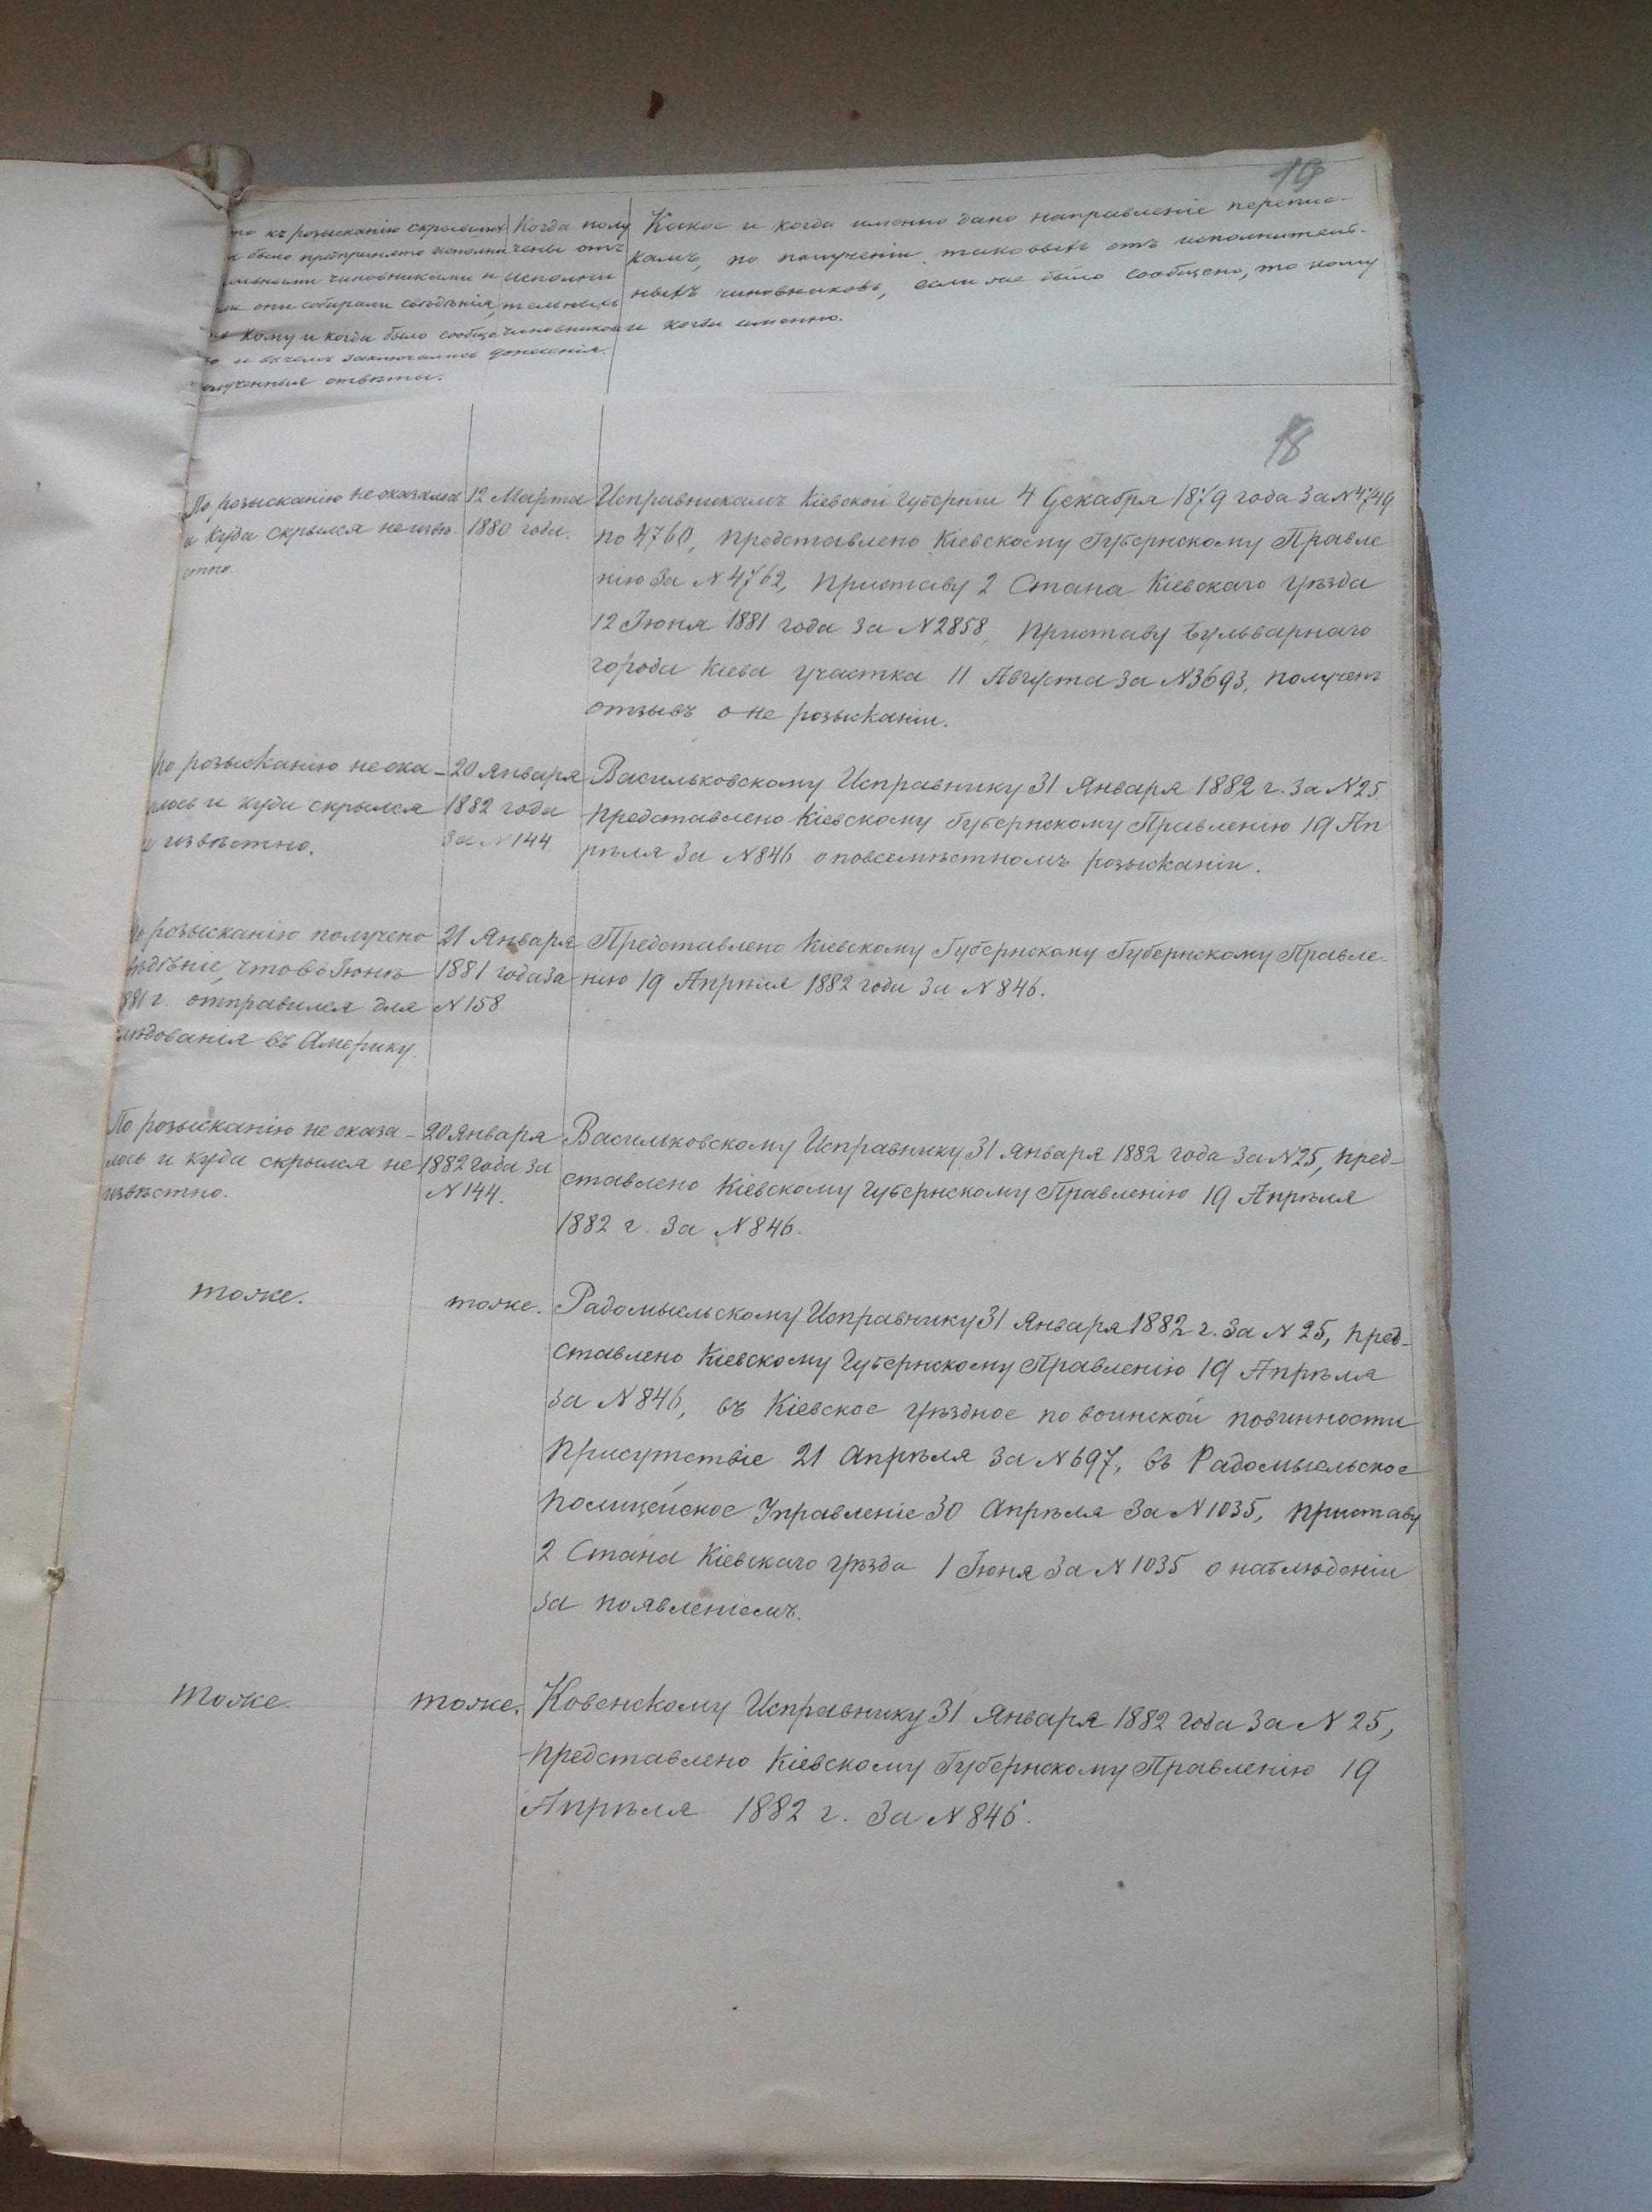 19
къ розысканію скрывшихся
было предпринято исполни
чиновниками и
они собирали свѣдѣнія,
кому и когда было сообще
и въ чемъ заключались
отвѣты.
Когда полу
чены отъ
исполни
тельныхъ
чиновников
донесенія.
Какое и когда именно дано направленіе перепис-
камъ, по полученіи таковыхъ отъ исполнитель-
ныхъ чиновниковъ, если же было сообщено, то кому
и когда именно.
18
По розысканію не оказался
и куда скрылся неизвѣ
стно.
12 Марта
1880 года.
Исправникамъ Кіевской Губерніи 4 Декабря 1879 года за №4749
по 4760, представлено Кіевскому Губернскому Правле
нію за №4762, Приставу 2 Стана Кіевскаго уѣзда
12 Іюня 1881 года за №2858, Приставу Бульварнаго
города Кіева участка 11 Августа за №3693, получен
отзывъ о не розысканіи.
по розысканію не ока-
лось и куда скрылся
извѣстно.
20 Января
1882 года
за №144
Васильковскому Исправнику 31 Января 1882 г. за №25
представлено Кіевскому Губернскому Правленію 19 Ап
рѣля за №846 о повсемѣстномъ розысканіи.
розысканію получено
вѣдѣніе, что въ Іюнѣ
881 г. отправился для
слѣдованія въ Америку.
21 Января
1881 года за
№158
Представлено Кіевскому Губернскому Губернскому Правле-
нію 19 Апрѣля 1882 года за №846.
По розысканію не оказа-
лось и куда скрылся не
извѣстно.
20 Января
1882 года за
№144.
Васильковскому Исправнику 31 Января 1882 года за №25, пред-
ставлено Кіевскому Губернскому Правленію 19 Апрѣля
1882 г. за №846.
тоже.
тоже.
Радомысльскому Исправнику 31 Января 1882 г. за №25, пред-
ставлено Кіевскому Губернскому Правленію 19 Апрѣля
за №846, въ Кіевское уѣздное по воинской повинности
Присутствіе 21 Апрѣля за №697, въ Радомысльское
Полицейское Управленіе 30 Апрѣля за №1035, Приставу
2 Стана Кіевскаго уѣзда 1 Іюня за №1035 о наблюденіи
за появленіемъ.
тоже.
тоже.
Ковенскому Исправнику 31 Января 1882 года за №25,
представлено Кіевскому Губернскому Правленію 19
Апрѣля 1882 г. за №846.